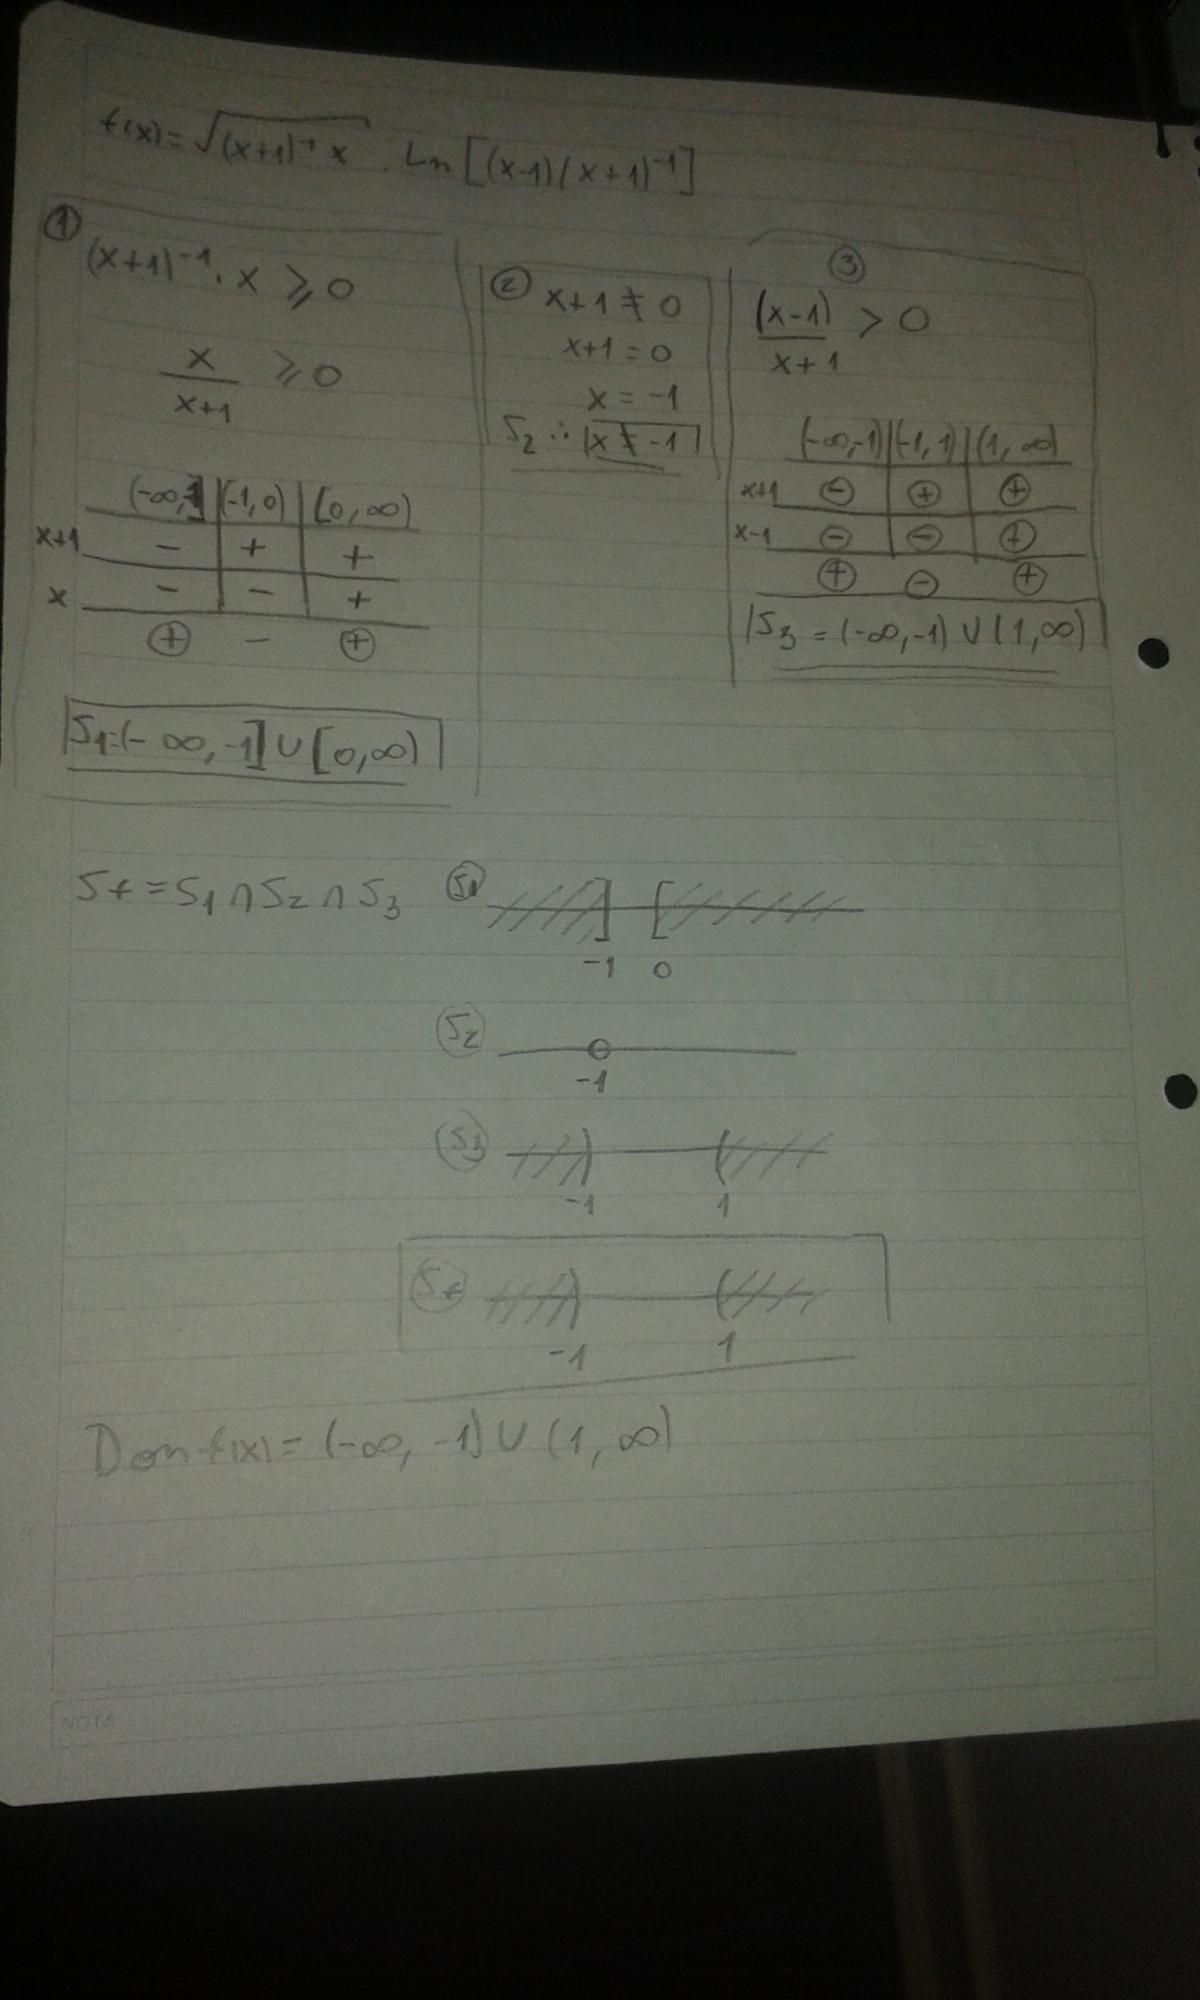 f(x)=√(x+1)⁻¹ x . Ln [(x-1)(x+1)⁻¹]
①
(x+1)⁻¹ . x ⩾ 0
x/x+1 ⩾ 0
(-∞,-1] | (-1,0) | [0,∞)
x+1 − + +
x − − +
⊕ − ⊕
S₁=(-∞,-1] ∪ [0,∞)
② x+1 ≠ 0
x+1 = 0
x = -1
S₂ ∴ x ≠ -1
③
(x-1)/x+1 > 0
(-∞,-1) | (-1,1) | (1,∞)
x+1 ⊖ ⊕ ⊕
x-1 ⊖ ⊖ ⊕
⊕ ⊖ ⊕
S₃ = (-∞,-1) ∪ (1,∞)
Sf = S₁ ∩ S₂ ∩ S₃
S₁
] [
-1 0
S₂
-1
S₃
) (
-1 1
Sf
) (
-1 1
Dom f(x) = (-∞, -1) ∪ (1, ∞)
NOTA